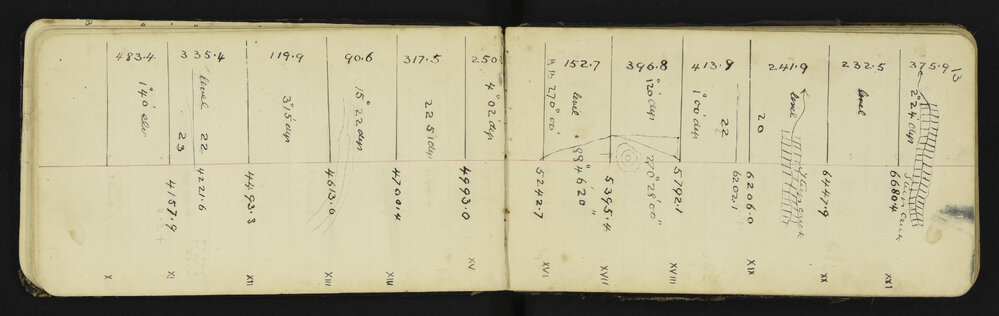 483.4 335.4 119.9 90.6 317.5 250
1°40' elev
level 22
23
3°15' dep
15° 22 dep
2 25 1 dep
4° 02' dep
4157.9 4221.6 4493.3 4613.0 4700.4 4993.0
X XI XII XIII XIV XV
152.7 396.8 413.9 241.9 232.5 375.9
13
BB 270° 00'
level
1°20' dep
1°00' dep
22
20
level
level
2°24' dep
88° 46' 20"
270° 28' 00"
5242.7 5395.4 5792.1 6202.1 6206.0 6447.9 6680.4
XVI XVII XVIII XIX XX XXI